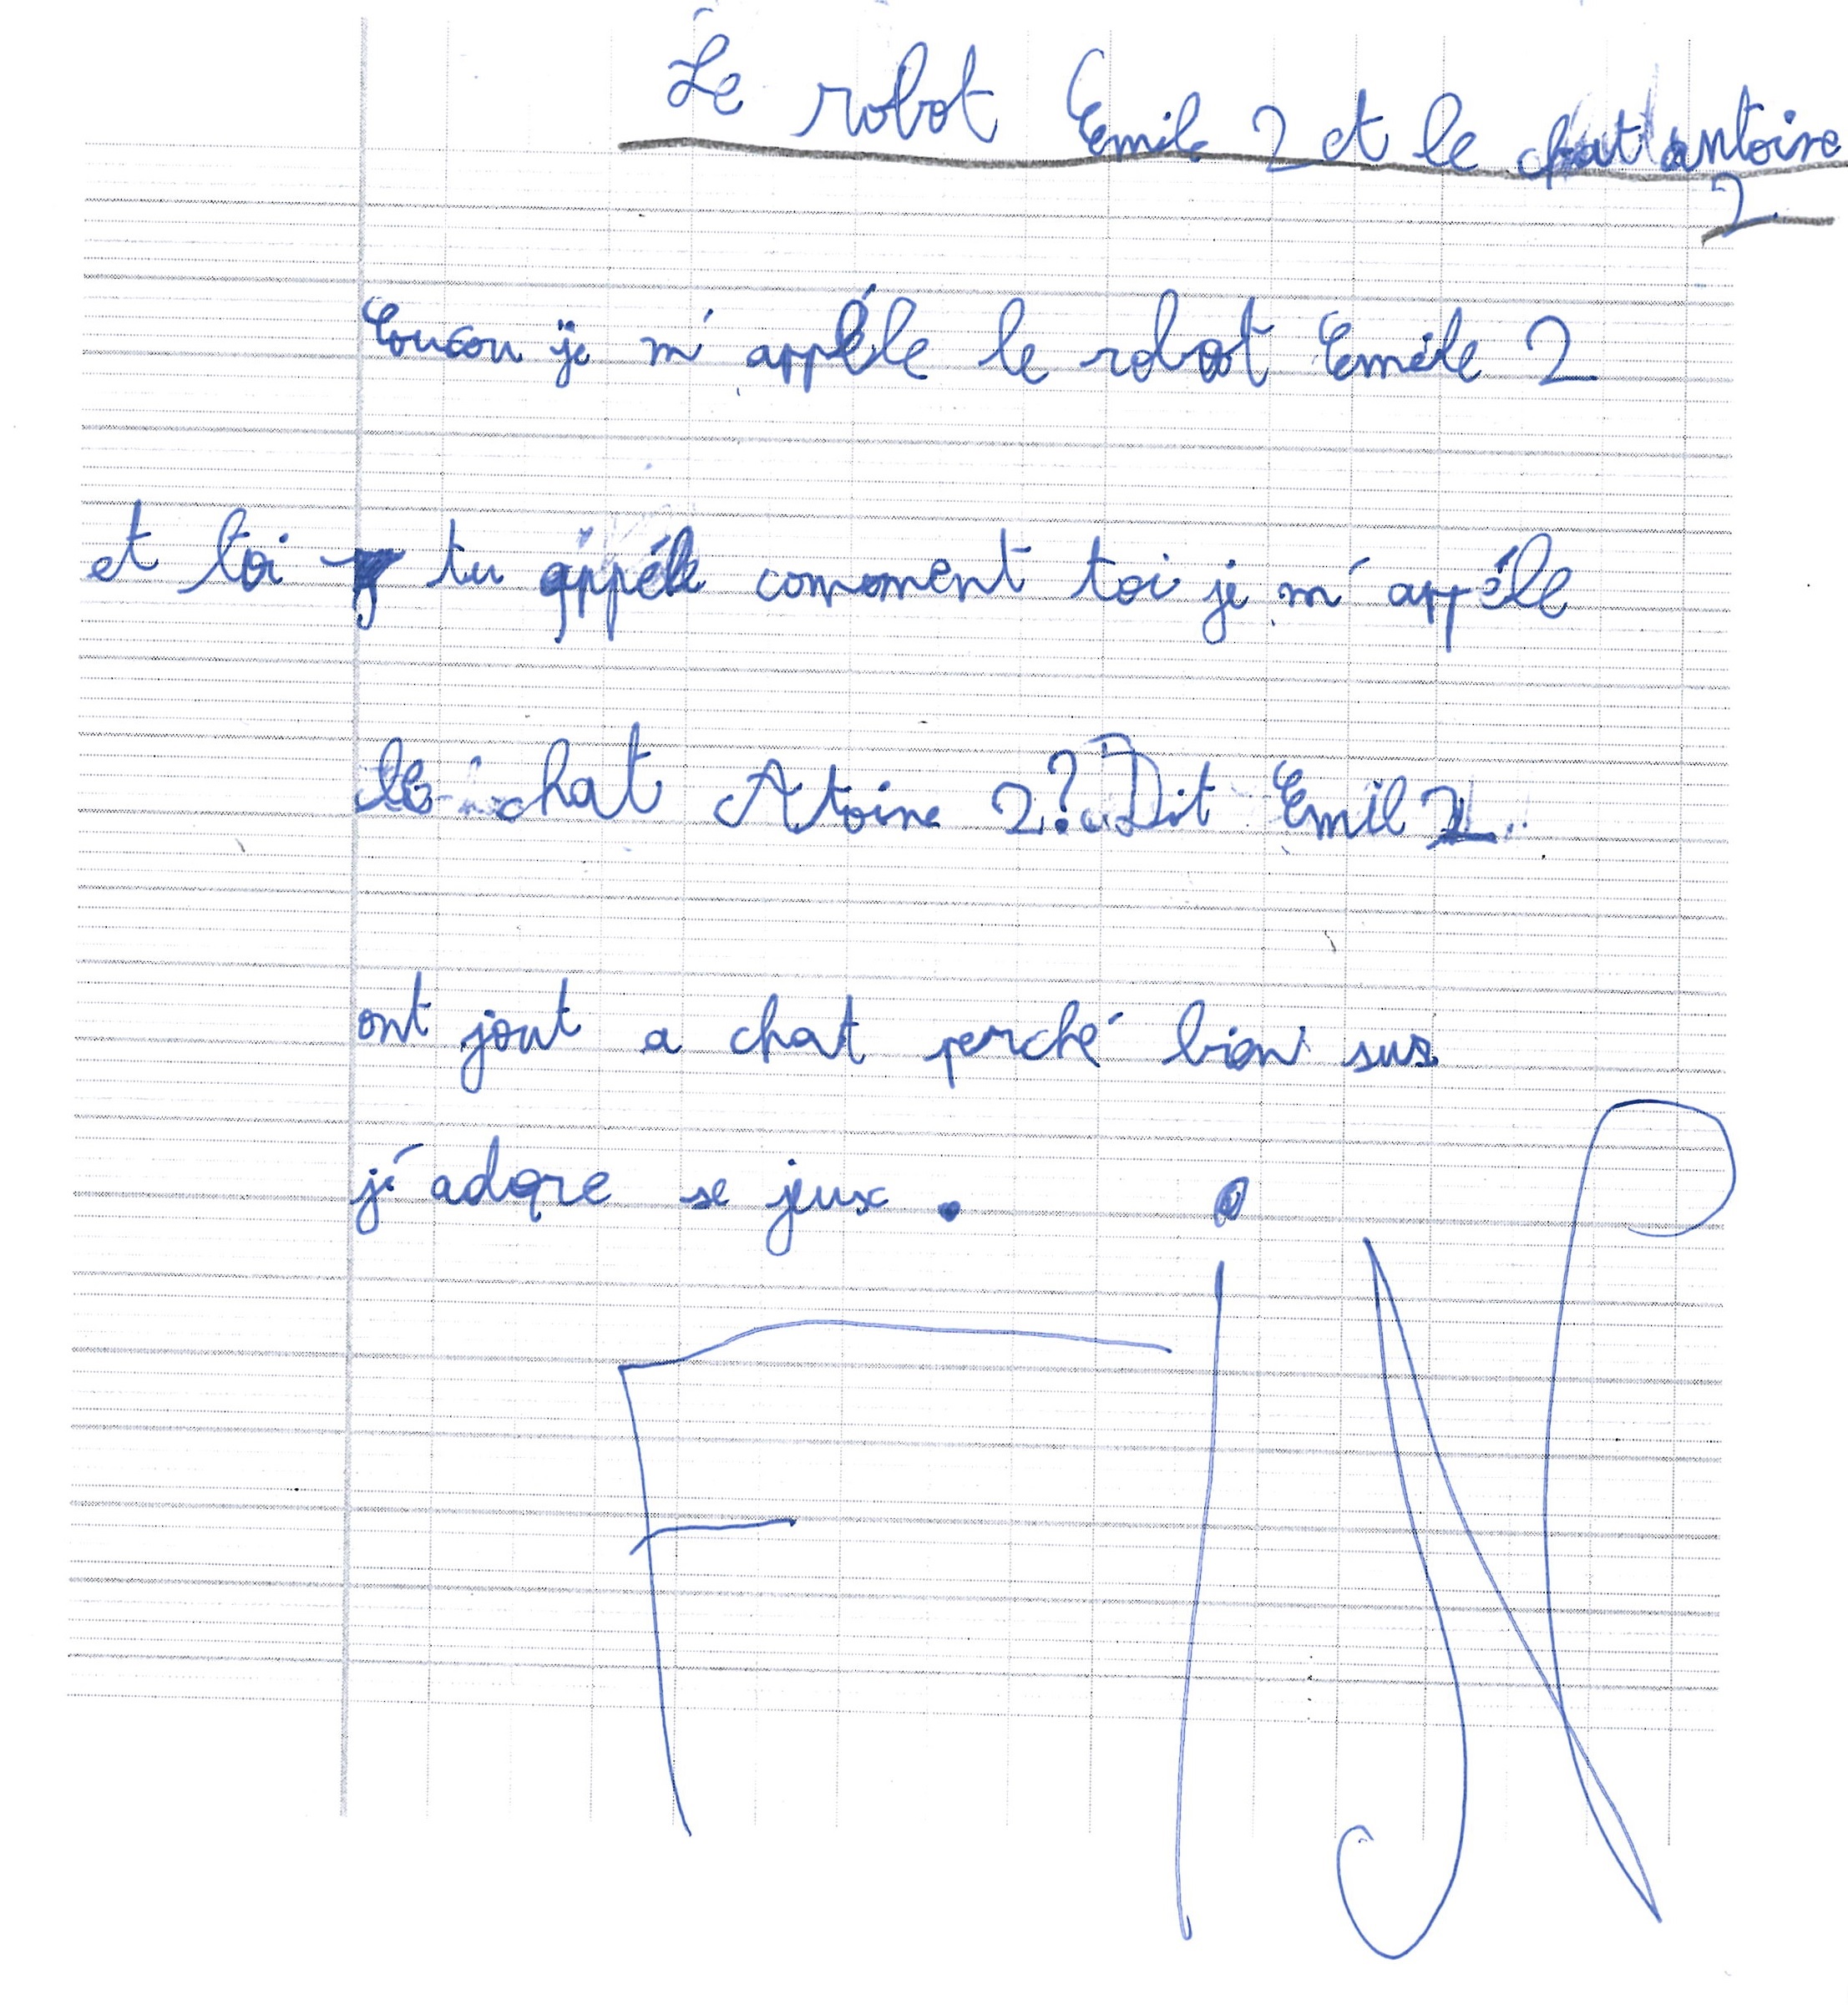 Le robot Emile 2 et le chat antoine
2
Coucou je m'appéle le robot Eméle 2
et toi tu appéle comment toi je m'appéle
le chat Atoine 2? Dit Emil 2.
ont jout a chat perché bien sus
j'adore se jeux .
FIN